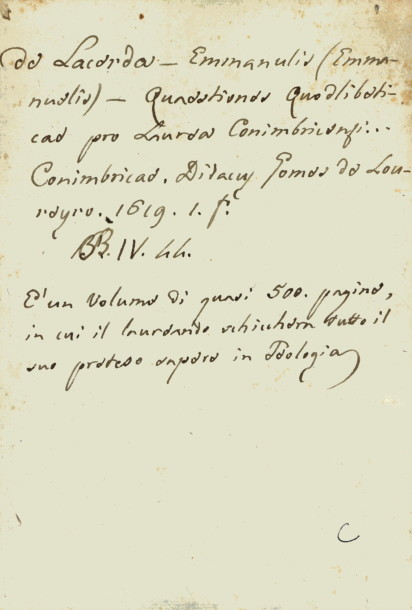 de Lacerda — Emmanulis (Emma-
nuelis) — Quaestiones Quodlibeti-
cae pro Laurea Conimbricensi...
Conimbricae. Didacus Gomes de Lou-
reyro. 1619. 1. f.
BB. IV. 44.
E' un volume di quasi 500. pagine,
in cui il laureando schichera tutto il
suo preteso sapere in Teologia
C